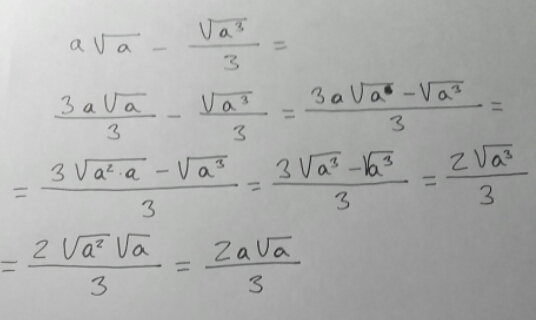 a√a - √a³/3 =
3a√a/3 - √a³/3 = (3a√a - √a³)/3 =
= (3√(a²·a) - √a³)/3 = (3√a³ - √a³)/3 = 2√a³/3
= 2√a²√a/3 = 2a√a/3